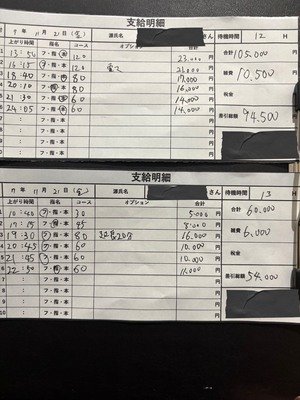 支給明細
ク 年 11 月 21 日(金) 源氏名 さん 待機時間 12 H
上がり時間 指名 コース オプション
1 13:50 フ・指・本 120 23.000 円
2 16:15 フ・指・本 120 21.000 円
3 18:40 フ・指・本 80 17.000 円
4 20:10 フ・指・本 80 16.000 円
5 21:30 フ・指・本 60 14.000 円
6 24:05 フ・指・本 60 14.000 円
7 フ・指・本 円
8 フ・指・本 円
9 フ・指・本 円
10 フ・指・本 円
合計 105.000 円
雑費 10.500 円
税金 円
差引総額 94.500 円
支給明細
年 11 月 21 日(金) 源氏名 さん 待機時間 13 H
上がり時間 指名 コース オプション
1 10:40 フ・指・本 30 5.000 円
2 17:15 フ・指・本 45 8.000 円
3 19:30 フ・指・本 80 延長20分 16.000 円
4 20:45 フ・指・本 60 10.000 円
5 21:45 フ・指・本 60 10.000 円
6 22:50 フ・指・本 60 11.000 円
7 フ・指・本 円
8 フ・指・本 円
9 フ・指・本 円
10 フ・指・本 円
合計 60.000 円
雑費 6.000 円
税金 円
差引総額 54.000 円